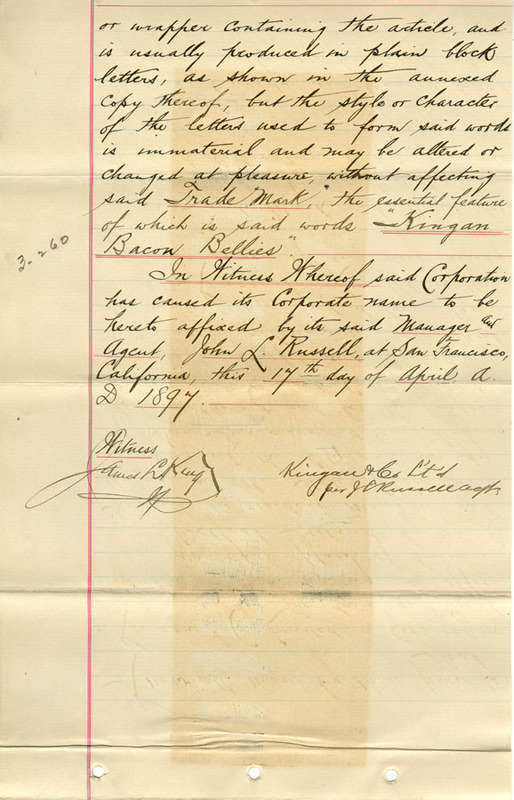 or wrapper containing the article, and
is usually produced in plain block
letters, as shown in the annexed
Copy thereof, but the style or character
of the letters used to form said words
is immaterial and may be altered or
changed at pleasure, without affecting
said Trade Mark, the essential feature
of which is said words "Kingan
Bacon Bellies".
3-260
In Witness Whereof, said Corporation
has caused its Corporate name to be
hereto affixed by its said Manager and
Agent, John L. Russell, at San Francisco,
California, this 17th day of April, A.
D 1897
Witness
L. King
Kingan & Co L't'd
per J L Russell Agt.